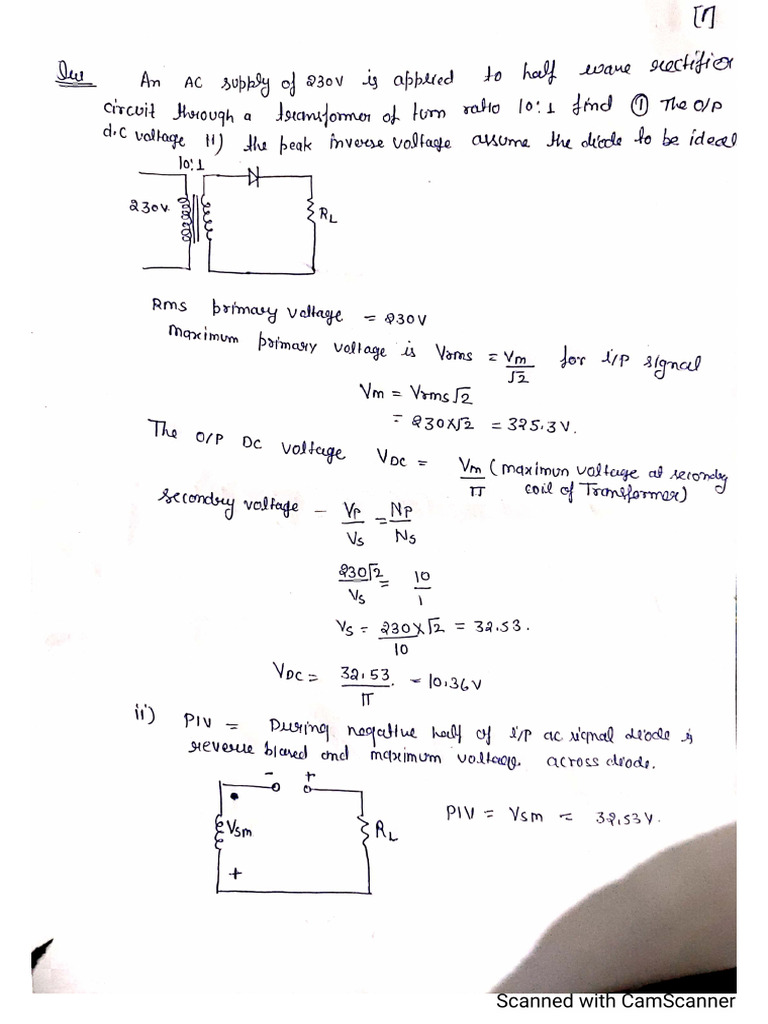 [7]
Que An AC supply of 230V is applied to half wave rectifier
circuit through a transformer of turn ratio 10:1 find ① The O/P
d.c voltage ii) the peak inverse voltage assume the diode to be ideal
10:1
230V
RL
Rms primary voltage = 230V
maximum primary voltage is Vrms = Vm/√2 for i/p signal
Vm = Vrms√2
= 230×√2 = 325.3V.
The O/P DC voltage VDC = Vm/π (maximum voltage at secondry
coil of Transformer)
secondry voltage - Vp/Vs = Np/Ns
230√2/Vs = 10/1
Vs = 230×√2/10 = 32.53.
VDC = 32.53/π = 10.36V
ii) PIV = During negative half of i/p ac signal diode is
reverse biased and maximum voltage. across diode.
- +
Vsm
RL
+
PIV = Vsm = 32.53V.
Scanned with CamScanner